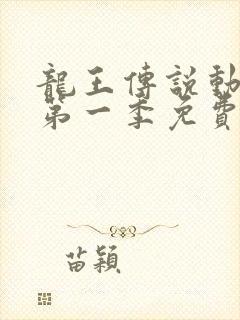 龍王傳說動
第一季免費
苗穎